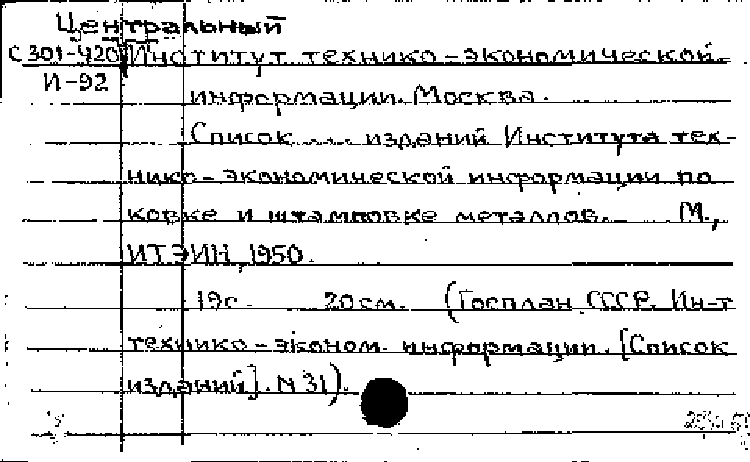 Центральный
С 301-420 Институт технико-экономической
И-92
информации. Москва.
Список .... изданий Института тех-
нико-экономической информации по
ковке и штамповке металлов. М.,
ИТЭИН, 1950.
19с. 20см. (Госплан СССР. Ин-т
технико-эконом. информации. [Список
изданий]. N 31).